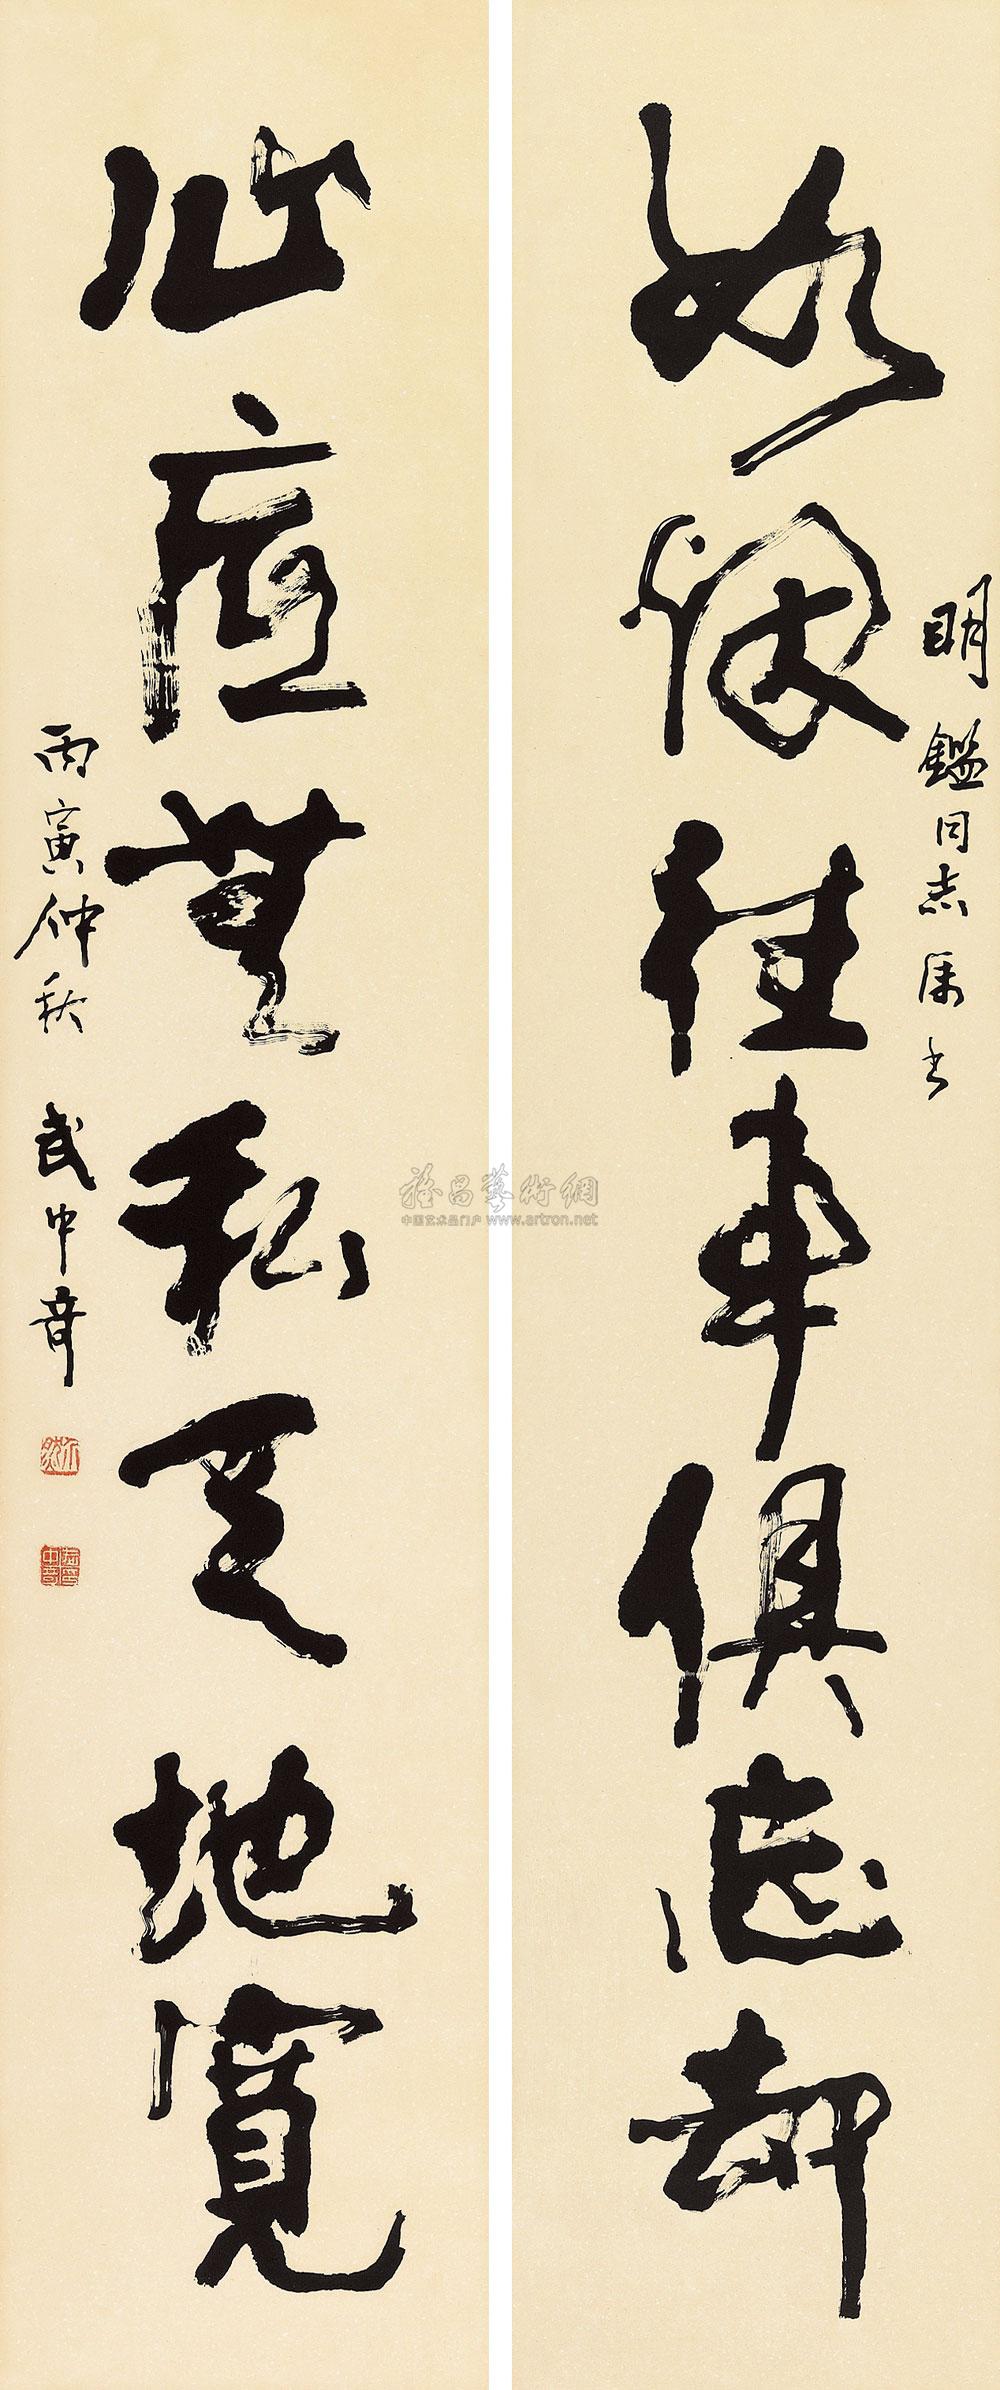 明鑑同志属书
如烟往事俱忘却
心底無私天地寬
丙寅仲秋 武中奇
雅昌藝術網
中国艺术品门户 www.artron.net